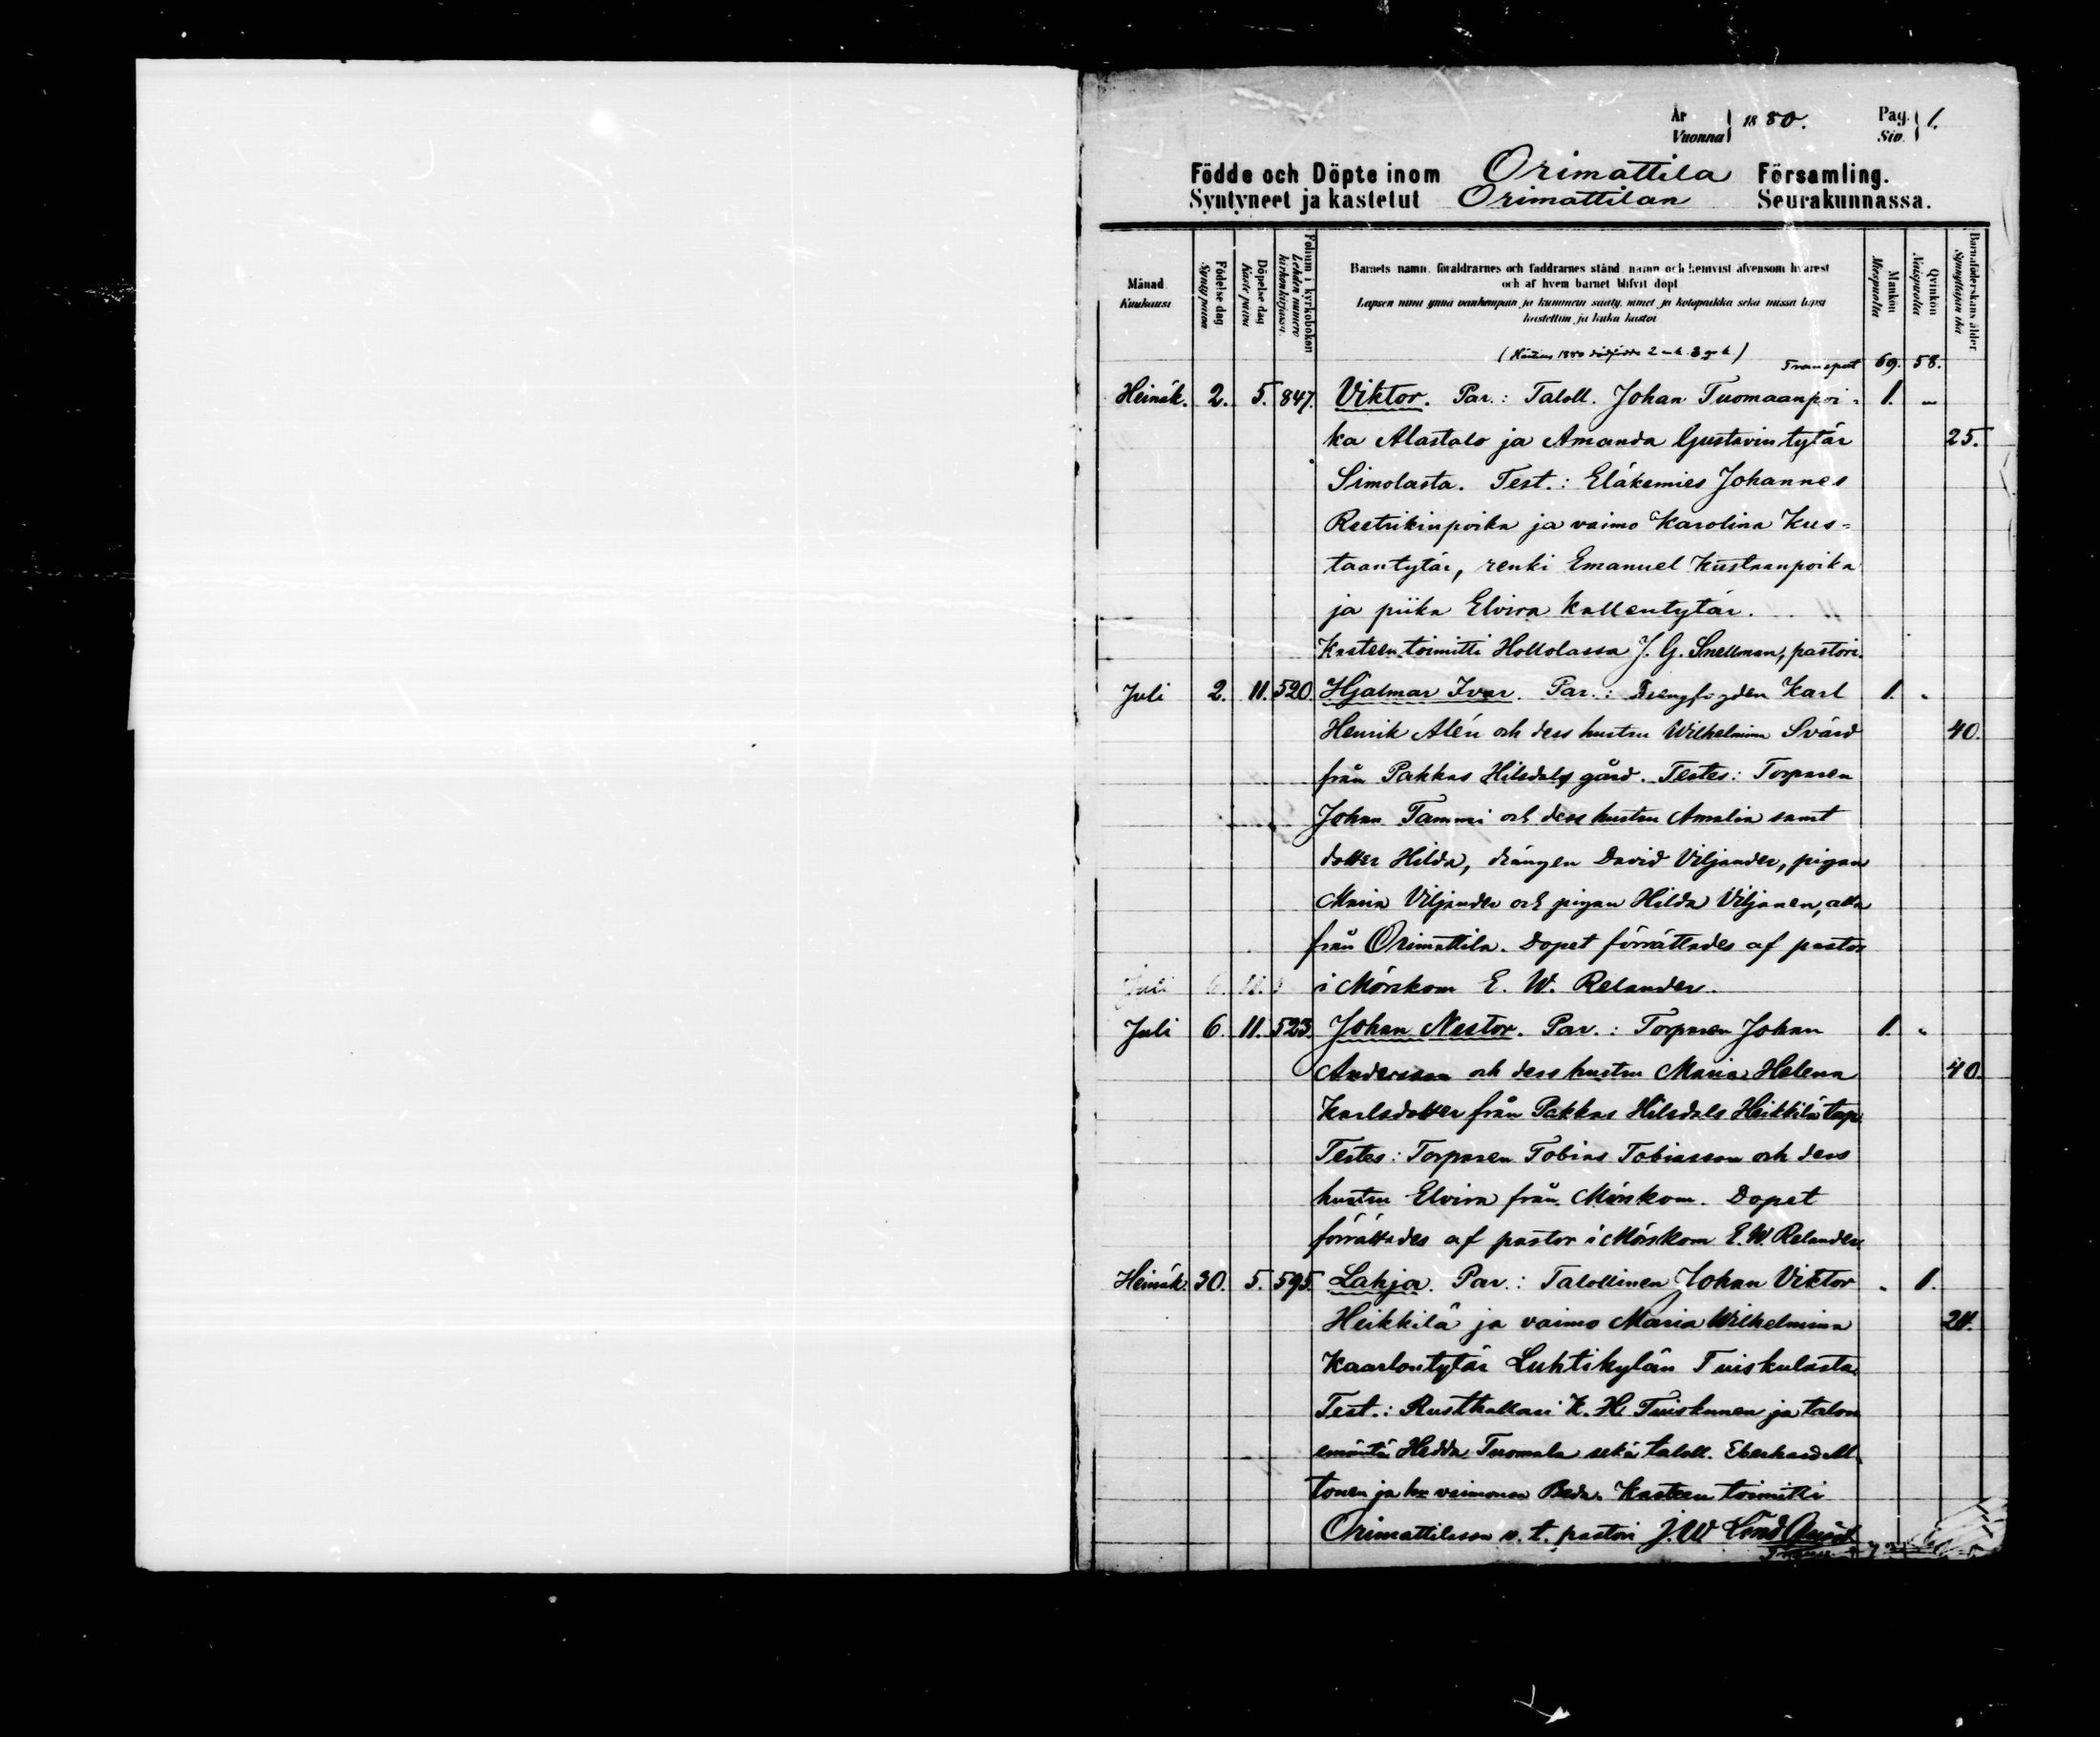 År
Vuonna } 1880.
Pag.
Siv. } 1.
Födde och Döpte inom Orimattila Församling.
Syntyneet ja kastetut Orimattilan Seurakunnassa.
Månad
Kuukausi
Födelse dag
Syntymäpäivä
Döpelse dag
Kaste päivä
Folium i kyrkoboken
Lehden numero kirkonkirjassa.
Barnets namn, föräldrarnes och faddrarnes stånd, namn och hemvist äfvensom hvarest
och af hvem barnet blifvit döpt
Lapsen nimi ynnä vanhempain ja kummien sääty, nimet ja kotopaikka sekä missä lapsi
kastettiin ja kuka kastoi
Mankön
Miespuolia
Qvinkön
Naispuolia
Barnaföderskans ålder
Synnyttäjän ikä
1880 dödfödde 2 m.k. 3 q.k.)
Transport 69. 58.
Heinäk. 2. 5. 847. Viktor. Par.: Taloll. Johan Tuomaanpoi- 1. "
ka Alastalo ja Amanda Gustavintytär 25.
Simolasta. Test.: Eläkemies Johannes
Reetrikinpoika ja vaimo Karolina Kus=
taantytär, renki Emanuel Kustaanpoika
ja piika Elvira Kallentytär.
Kasteen toimitti Hollolassa J. G. Snellman, pastori.
Juli 2. 11. 520. Hjalmar Ivar. Par.: Drengfogden Karl 1. "
Henrik Alén och dess hustru Wilhelmina Svärd 40.
från Pakkas Hilsdals gård. Testes: Torparen
Johan Tammi och dess hustru Amalia samt
dotter Hilda, drängen David Viljander, pigan
Maria Viljander och pigan Hilda Viljanen, alla
från Orimattila. Dopet förrättades af pastor
Juli 6. 11. i Mörskom E. W. Relander.
Juli 6. 11. 523. Johan Nestor. Par.: Torparen Johan 1. "
Andersson och dess hustru Maria Helena 40.
Karlsdotter från Pakkas Hilsdals Heikkilä torp.
Testes: Torparen Tobias Tobiasson och dess
hustru Elvira från Mörskom. Dopet
förrättades af pastor i Mörskom E. W. Relander.
Heinäk. 30. 5. 595. Lahja. Par.: Talollinen Johan Viktor " 1.
Heikkilä ja vaimo Maria Wilhelmina 24.
Kaarlontytär Luhtikylän Tuiskulasta
Test.: Rusthollari K. H. Tuiskunen ja talon
emäntä Hedda Tuomala sekä taloll. Eberhard Al
tonen ja vaimonsa Beda. Kasteen toimitti
Orimattilassa v. t. pastori J. W. LindQuist